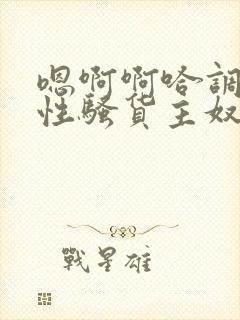 嗯啊啊哈調
性騷貨主奴
戰星雄